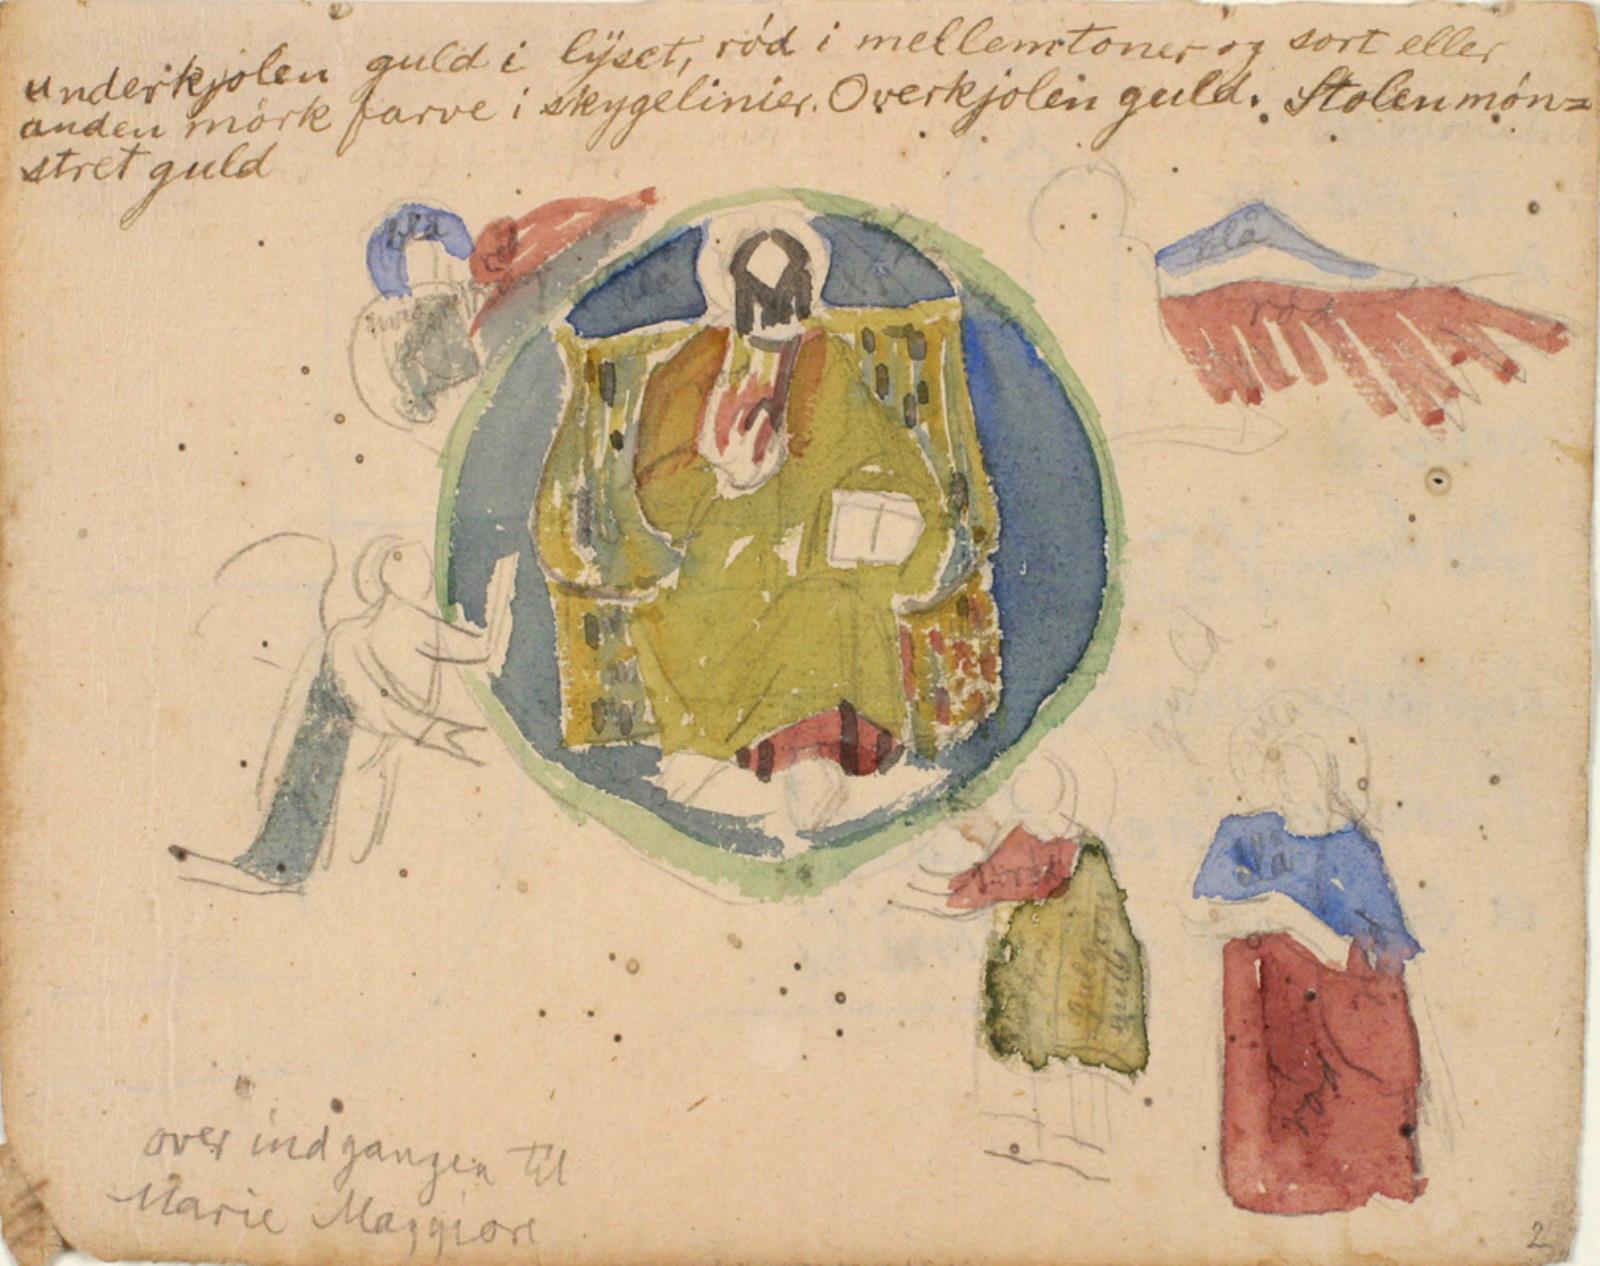 underkjolen guld i lÿset, röd i mellemtoner og sort eller
anden mörk farve i skygelinier. Overkjolen guld. Stolen mön=
stret guld
blå
röd
blå
röd
röd
guld
guld
blå
röd
gulgrön
röd
over indgangen til
Marie Maggiore
2